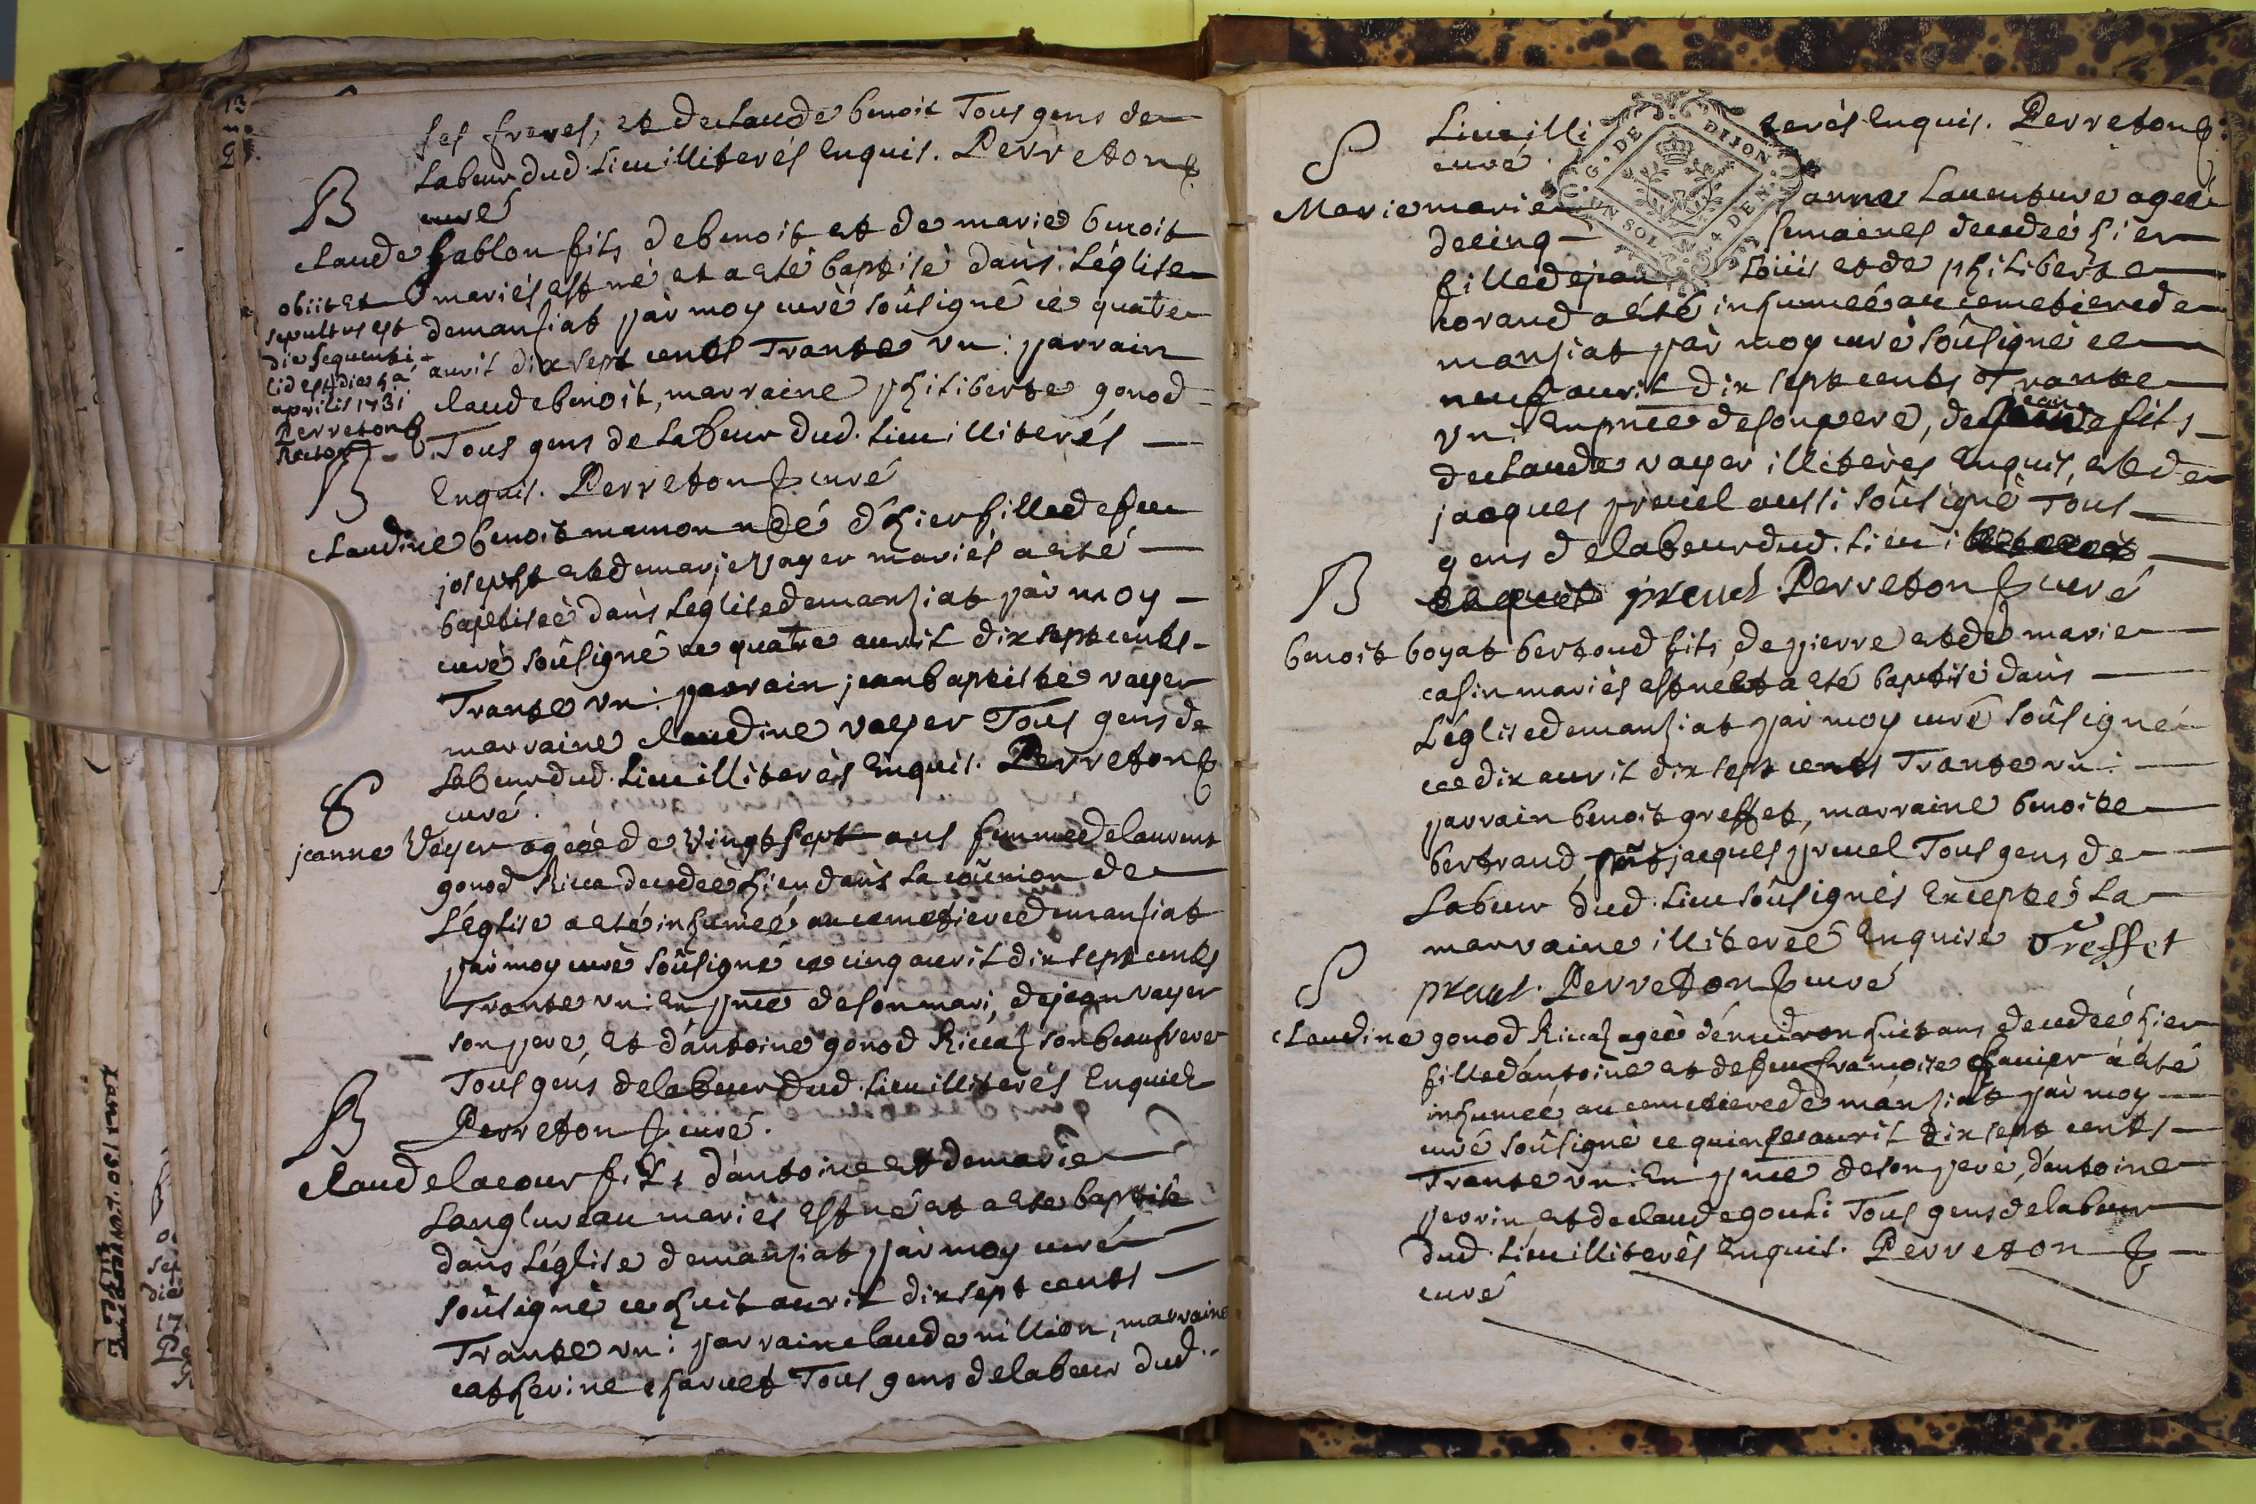 ses freres, et de claude benoit Tous gens de
Labeur dud. Lieu illiterés Enquis. Perreton
curé
B
claude sablon fils de benoit et de marie benoit
mariés est né et a eté baptisé dans L'église
de mansiat par moy curé soûsigné ce quatre
avril dix sept cents Trante un : parrain
claude benoit, marraine philiberte gonod
Tous gens de Labeur dud. Lieu illiterés
Enquis. Perreton curé
obiit et
sepultus est
die sequenti
id est die 5a
aprilis 1731
Perreton
Rector
B
claudine benoit mamon née d'hier fille de feu
joseph et de marje vayer mariés a eté
baptiseé dans L'église de mansiat par moy
curé soûsigné ce quatre avril dix sept cents
Trante un : parrain jean baptiste vayer
marraine claudine vayer Tous gens de
Labeur dud. Lieu illiterés Enquis. Perreton
curé.
S
jeanne Vayer ageé de Vingt sept ans femme de laurent
gonod Ricca decedeé hier dans La coũnion de
L'église a eté inhumeé au cemetiere de mansiat
par moy curé soûsigné ce cinq avril dix sept cents
Trante un : En pñce de son mari, de jean vayer
son pere, et d'antoine gonod Riccaz son beaufrere
Tous gens de labeur dud. Lieu illiterés Enquis
Perreton curé.
B
claude lacour fils d'antoine et de marie
Langlureau mariés est né et a eté baptisé
dans L'église de mansiat par moy curé
soûsigné ce huit avril dix sept cents
Trante un : parrain claude nillion, marraine
catherine charvet Tous gens de labeur dud.
Lieu illi terés Enquis. Perreton
curé.
G. DE DIJON
UN SOL 4 DEN
S
Marie marie anne Laventure ageé
de cinq semaines decedeé hier
fille de jean Loüis et de philiberte
corand a eté inhumeé au cemetiere de
mansiat par moy curé soûsigné ce
neuf avril dix sept cents Trante
un : En pñce de son pere, de jean fils
de claude vayer illiterés Enquis, et de
jacques pruel aussi soûsigné Tous
gens de labeur dud. Lieu
pruel Perreton curé
B
benoit boyat bertoud fils de pierre et de marie
casin mariés est né et a eté baptisé dans
L'église de mansiat par moy curé soûsigné
ce dix avril dix sept cents Trante un :
parrain benoit greffet, marraine benoite
bertrand, pñt jacques pruel Tous gens de
Labeur dud. Lieu soûsignés Exceptés La
marraine illitereé Enquise Greffet
pruel. Perreton curé
S
claudine gonod Riccaz ageé d'environ huit ans decedeé hier
fille d'antoine et de feu francoise favier a eté
inhumeé au cemetiere de mansiat par moy
curé soûsigné ce quinse avril dix sept cents
Trante un : En pñce de son pere, d'antoine
perrin et de claude gouli Tous gens de labeur
dud. Lieu illiterés Enquis. Perreton
curé